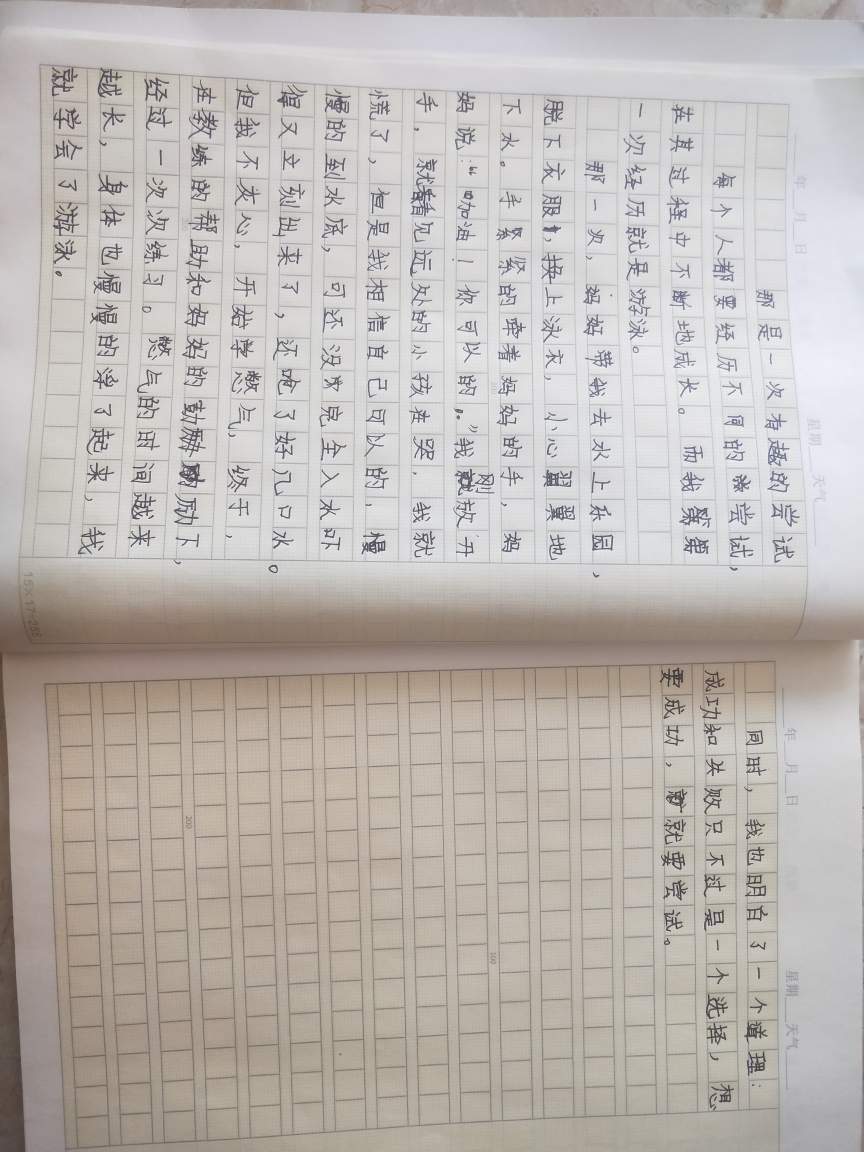 年 月 日
星期 天气
那是一次有趣的尝试
每个人都要经历不同的尝试，
在其过程中不断地成长。而我第
一次经历就是游泳。
那一次，妈妈带我去水上乐园，
脱下衣服，换上泳衣，小心翼翼地
下水。手紧紧的牵着妈妈的手，妈
妈说：“加油！你可以的。”我刚放开
手，就看见远处的小孩在哭，我就
慌了，但是我相信自己可以的，慢
慢的到水底，可还没完全入水吓
得又立刻出来了，还呛了好几口水。
但我不灰心，开始学憋气，终于，
在教练的帮助和妈妈的励下，
经过一次次练习。憋气的时间越来
越长，身体也慢慢的浮了起来，我
就学会了游泳。
15×17=255
年 月 日
星期 天气
同时，我也明白了一个道理：
成功和失败只不过是一个选择，想
要成功，就要尝试。
100
200